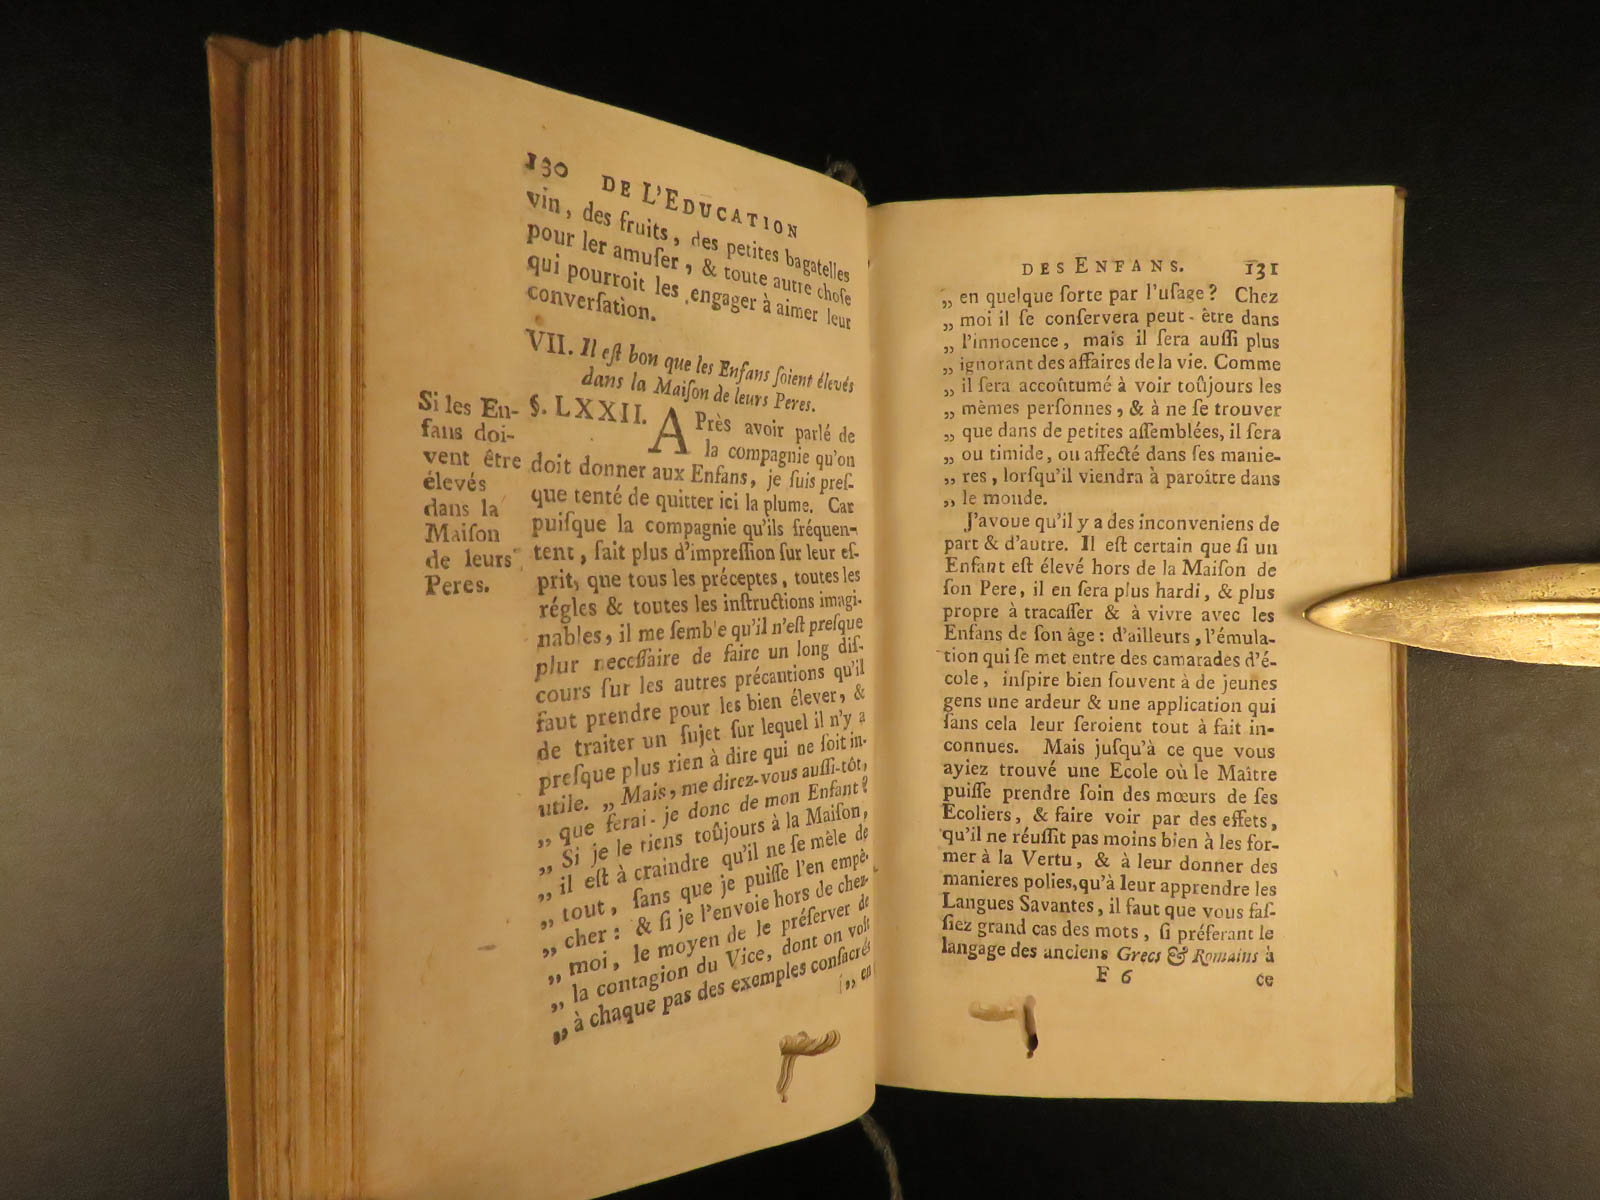 130 DE L'EDUCATION
vin, des fruits, des petites bagatelles
pour ler amuſer, & toute autre choſe
qui pourroit les engager à aimer leur
converſation.
VII. Il eſt bon que les Enfans ſoient élevés
dans la Maiſon de leurs Peres.
Si les En-
fans doi-
vent être
élevés
dans la
Maiſon
de leurs
Peres.
§. LXXII. APrès avoir parlé de
la compagnie qu'on
doit donner aux Enfans, je ſuis preſ-
que tenté de quitter ici la plume. Car
puiſque la compagnie qu'ils fréquen-
tent, fait plus d'impreſſion ſur leur eſ-
prit, que tous les préceptes, toutes les
régles & toutes les inſtructions imagi-
nables, il me ſemb'e qu'il n'eſt preſque
plur neceſſaire de faire un long diſ-
cours ſur les autres précautions qu'il
faut prendre pour les bien élever, &
de traiter un ſujet ſur lequel il n'y a
preſque plus rien à dire qui ne ſoit in-
utile. „ Mais, me direz-vous auſſi-tôt,
„ que ferai-je donc de mon Enfant?
„ Si je le tiens toûjours à la Maiſon,
„ il eſt à craindre qu'il ne ſe mêle de
„ tout, ſans que je puiſſe l'en empê-
„ cher: & ſi je l'envoie hors de chez-
„ moi, le moyen de le préſerver de
„ la contagion du Vice, dont on voit
„ à chaque pas des exemples conſacrés
„ en
DES ENFANS. 131
„ en quelque ſorte par l'uſage? Chez
„ moi il ſe conſervera peut-être dans
„ l'innocence, mais il ſera auſſi plus
„ ignorant des affaires de la vie. Comme
„ il ſera accoûtumé à voir toûjours les
„ mêmes perſonnes, & à ne ſe trouver
„ que dans de petites aſſemblées, il ſera
„ ou timide, ou affecté dans ſes manie-
„ res, lorſqu'il viendra à paroître dans
„ le monde.
J'avoue qu'il y a des inconveniens de
part & d'autre. Il eſt certain que ſi un
Enfant eſt élevé hors de la Maiſon de
ſon Pere, il en ſera plus hardi, & plus
propre à tracaſſer & à vivre avec les
Enfans de ſon âge: d'ailleurs, l'émula-
tion qui ſe met entre des camarades d'é-
cole, inſpire bien ſouvent à de jeunes
gens une ardeur & une application qui
ſans cela leur ſeroient tout à fait in-
connues. Mais juſqu'à ce que vous
ayiez trouvé une Ecole où le Maître
puiſſe prendre ſoin des mœurs de ſes
Ecoliers, & faire voir par des effets,
qu'il ne réuſſit pas moins bien à les for-
mer à la Vertu, & à leur donner des
manieres polies, qu'à leur apprendre les
Langues Savantes, il faut que vous faſ-
ſiez grand cas des mots, ſi préferant le
langage des anciens Grecs & Romains à
F 6 ce